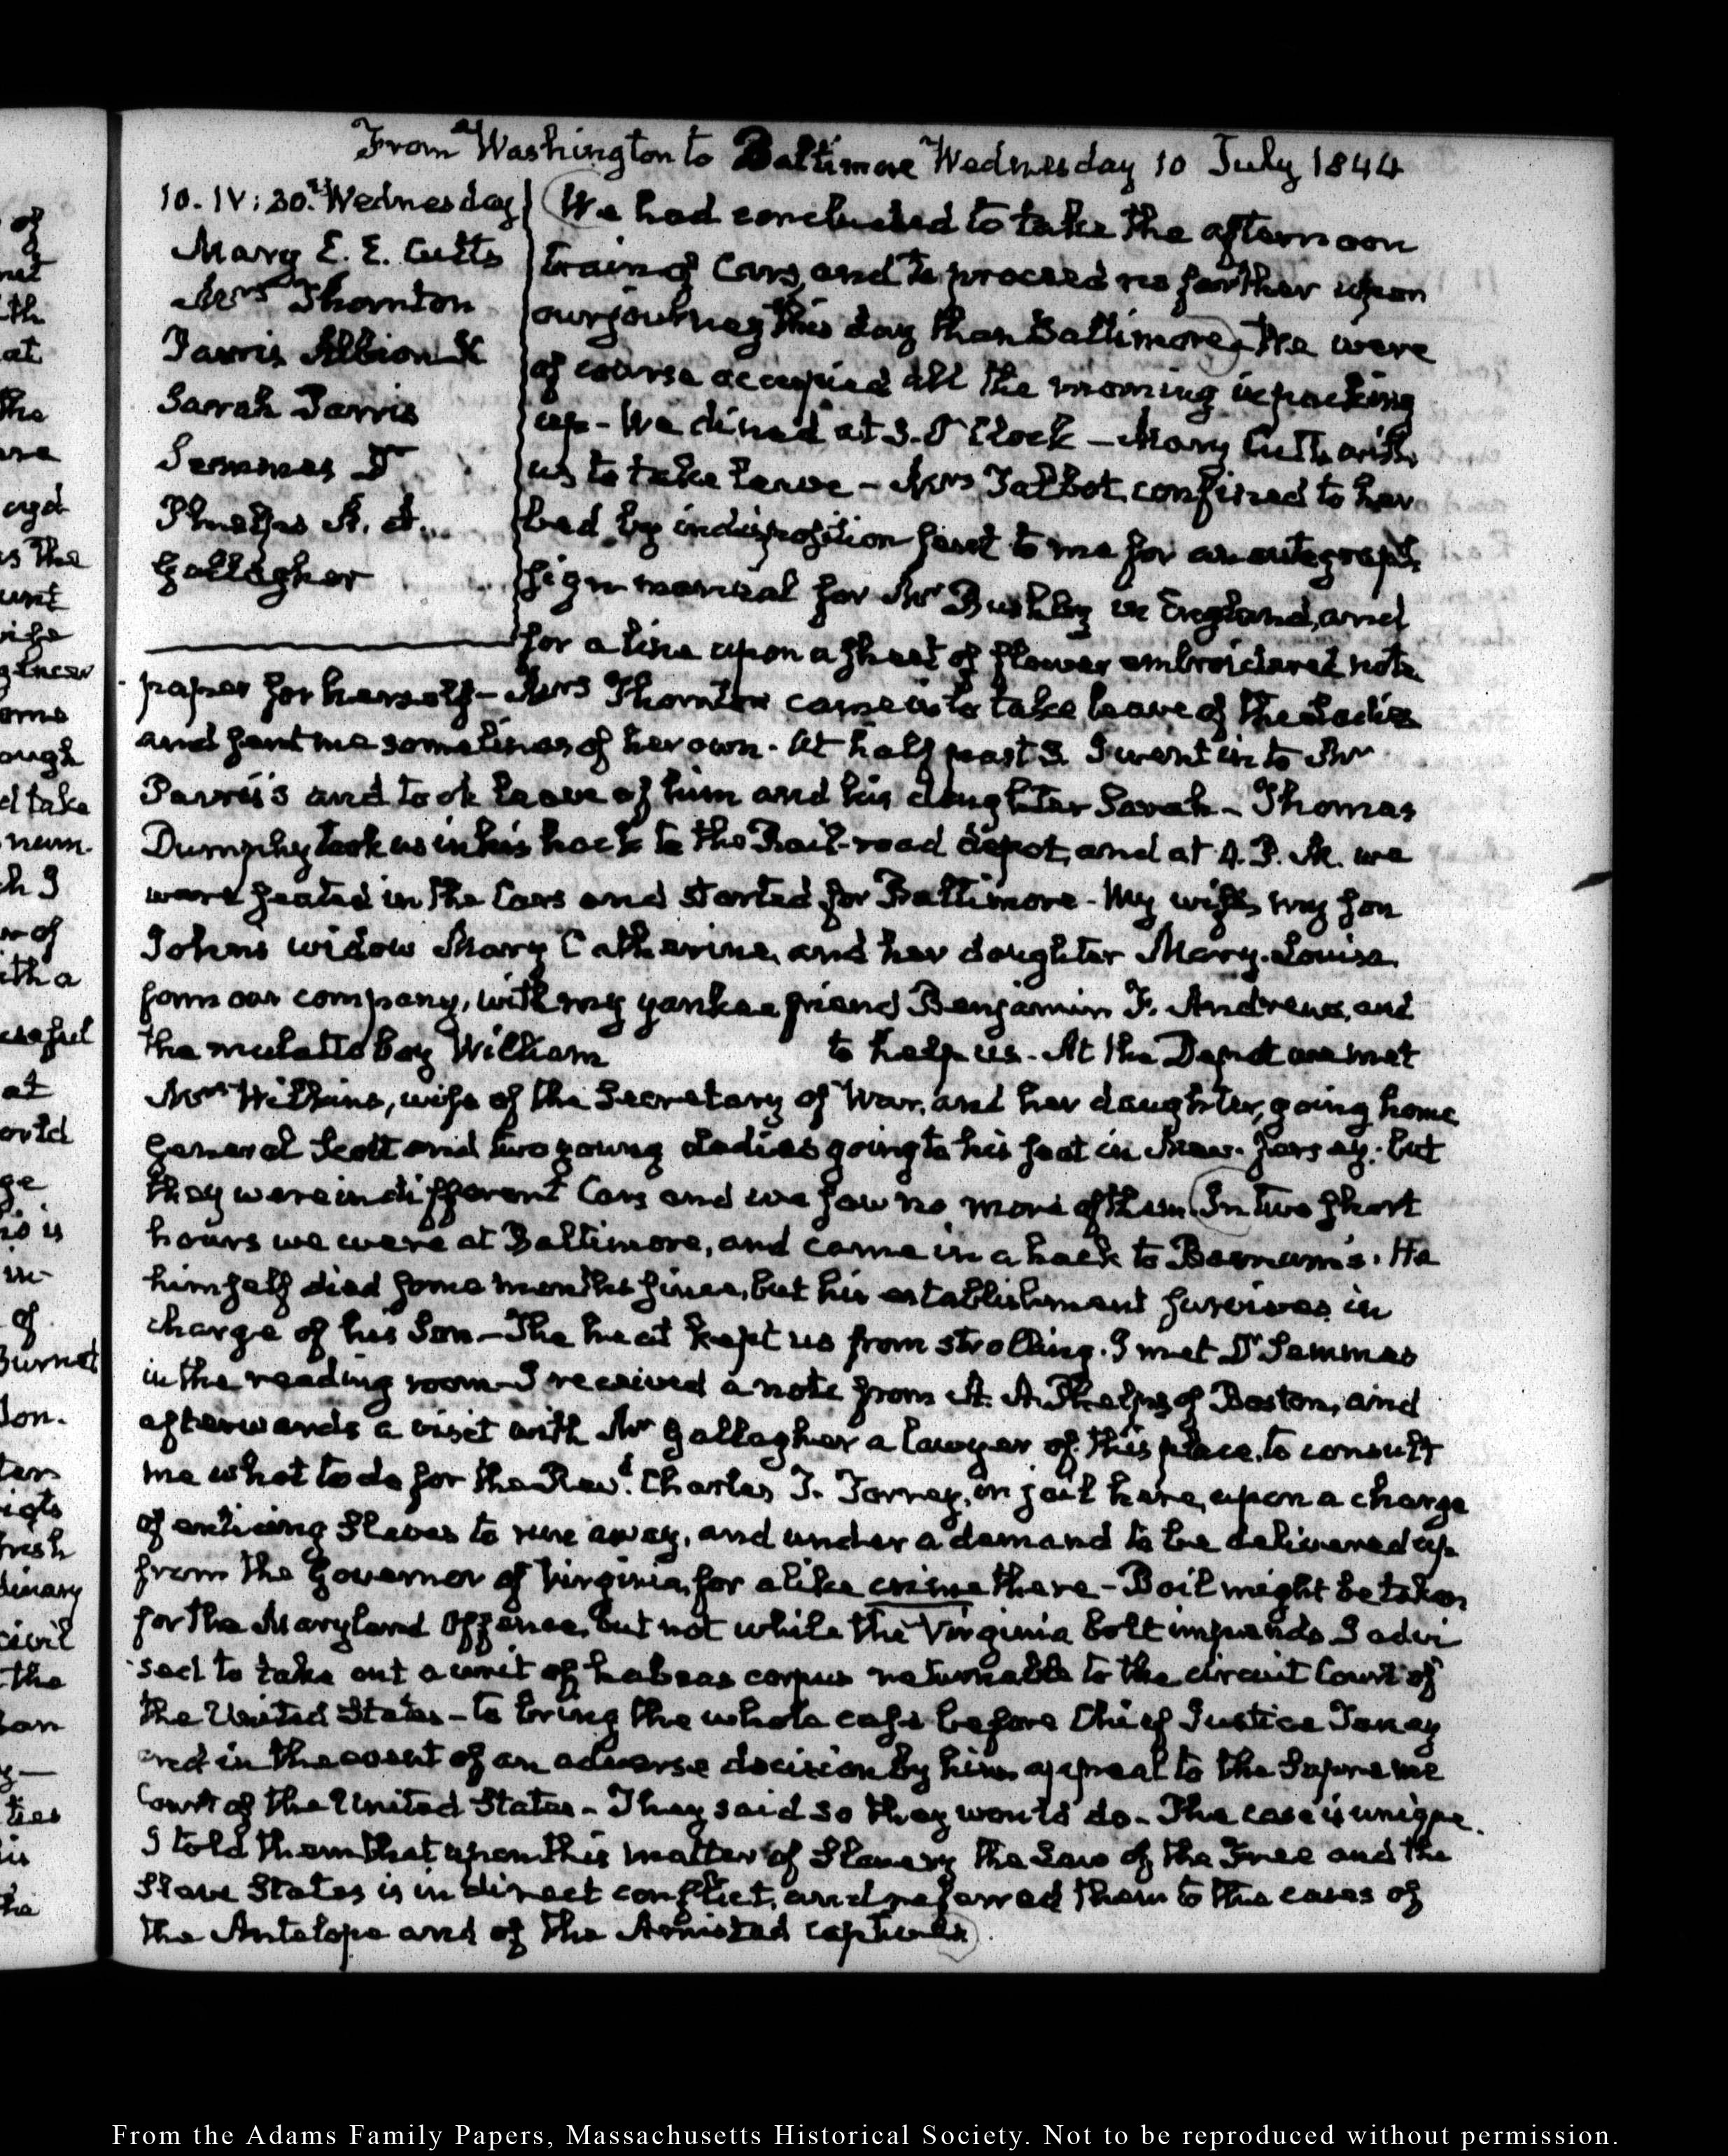 From Washington to Baltimore Wednesday 10 July 1844
10. IV: 30. Wednesday
Mary E. E. Cutts
Mrs Thornton
Parris Albion K
Sarah Parris
Semmes Dr
Phelps A. A.
Gallagher
We had concluded to take the afternoon
train of Cars, and to proceed no farther upon
our journey this day than Baltimore. We were
of course occupied all the morning in packing
up - We dined at 3. O'Clock - Mary Cutts with
us to take leave - Mrs Talbot, confined to her
bed by indisposition sent to me for an autograph
sign manual for Mr Bushby in England, and
for a line upon a sheet of flower embroidered note
paper for herself - Mrs Thornton came in to take leave of the Ladies
and sent me some lines of her own. At half past 3. I went in to Mr
Parris's and took leave of him and his daughter Sarah - Thomas
Dumphy took us in his hack to the Rail-road depot, and at 4. P. M. we
were seated in the Cars and started for Baltimore - My wife, my son
John's widow Mary Catherine, and her daughter Mary-Louisa.
form our company, with my yankee friend Benjamin F. Andrews, and
the mulatto boy William to help us. At the Depot we met
Mrs Wilkins, wife of the Secretary of War, and her daughter, going home
General Scott and two young Ladies going to his seat in New-Jersey. but
they were in different Cars and we saw no more of them In two short
hours we were at Baltimore, and came in a hack to Barnum's. He
himself died some months since, but his establishment survives, in
charge of his Son - The heat kept us from strolling. I met Dr Semmes
in the reading room - I received a note from A. A. Phelps of Boston, and
afterwards a visit with Mr Gallagher a lawyer of this place, to consult
me what to do for the Revd. Charles T. Torrey, in jail here, upon a charge
of enticing Slaves to run away, and under a demand to be delivered up
from the Governor of Virginia, for a like crime there - Bail might be taken
for the Maryland Offence, but not while the Virginia bolt impends. I advi
sed to take out a writ of habeas corpus returnable to the circuit Court of
the United States - to bring the whole case before Chief Justice Taney
and in the event of an adverse decision by him appeal to the Supreme
Court of the United States - They said so they would do - The case is unique.
I told them that upon this matter of Slavery the Law of the Free and the
Slave States is in direct conflict, and referred them to the cases of
the Antelope and of the Amistad captures
From the Adams Family Papers, Massachusetts Historical Society. Not to be reproduced without permission.